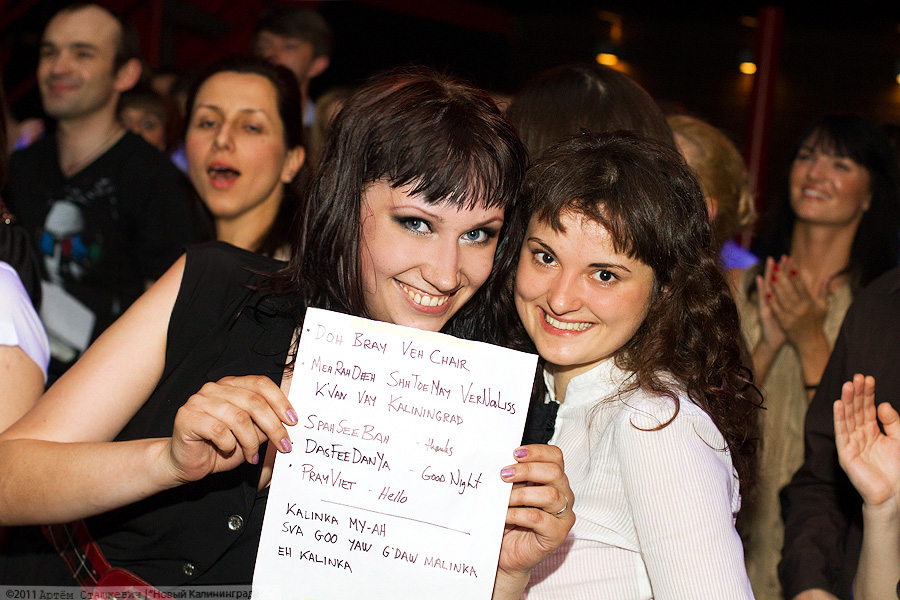 • Doh Bray Veh Chair
• MehRahDeeh ShhToeMay VerNooLiss
K'Van Vay Kaliningrad
SpahSeeBah - thanks
DasFeeDanYa - Good Night
• PrayViet - Hello
Kalinka My-Ah
Sva Goo Yaw G'Daw Malinka
Eh Kalinka
©2011 Артём Сташкевич | "Новый Калининград